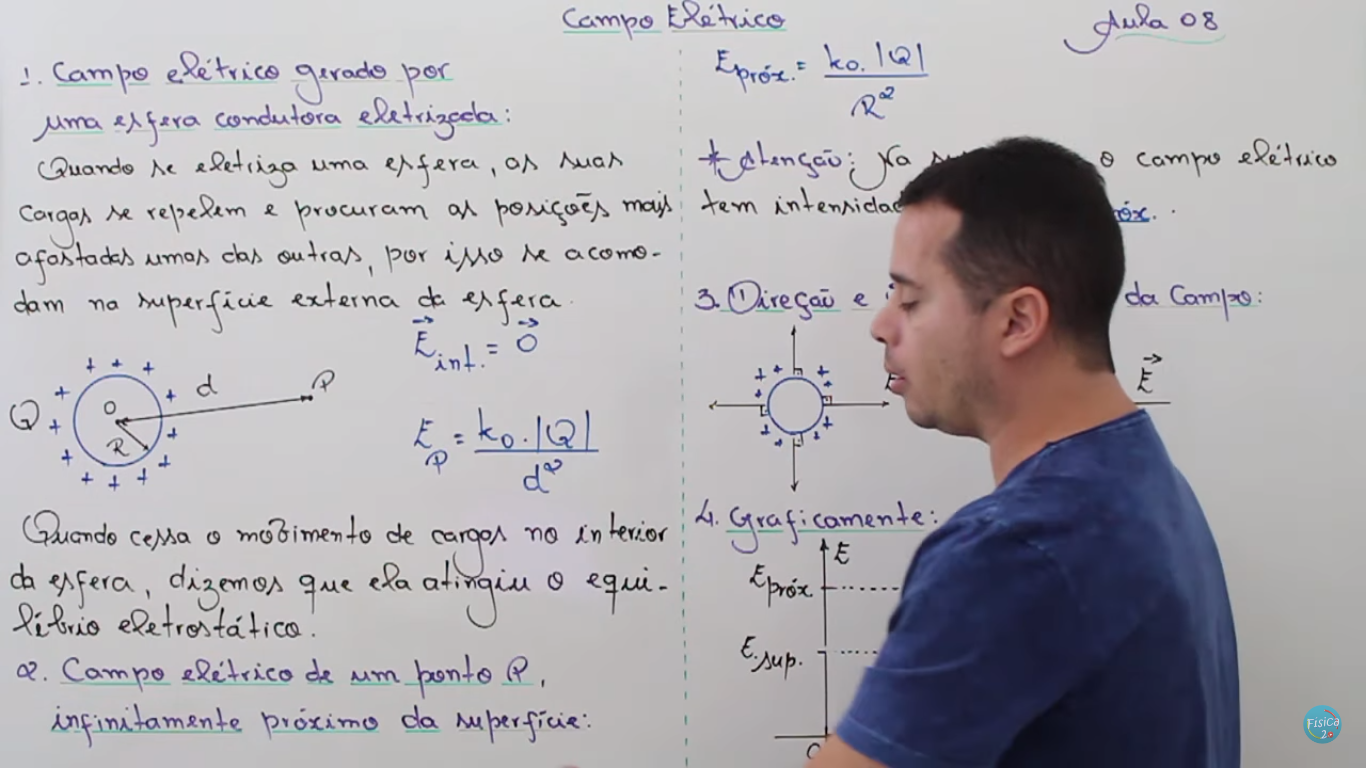 Campo Elétrico
Aula 08
1. Campo elétrico gerado por
uma esfera condutora eletrizada:
Quando se eletriza uma esfera, as suas
cargas se repelem e procuram as posições mais
afastadas umas das outras, por isso se acomo-
dam na superfície externa da esfera.
E⃗ int. = 0⃗
Q
+ + + + + + + + + + + + +
O
R
d
P
E P = k0.|Q| / d²
Quando cessa o movimento de cargas no interior
da esfera, dizemos que ela atingiu o equi-
líbrio eletrostático.
2. Campo elétrico de um ponto P,
infinitamente próximo da superfície:
E próx. = k0.|Q| / R²
* Atenção: Na o campo elétrico
tem
3. Direção e da Campo:
E⃗
4. Graficamente:
E
E próx.
E sup.
Física
2.